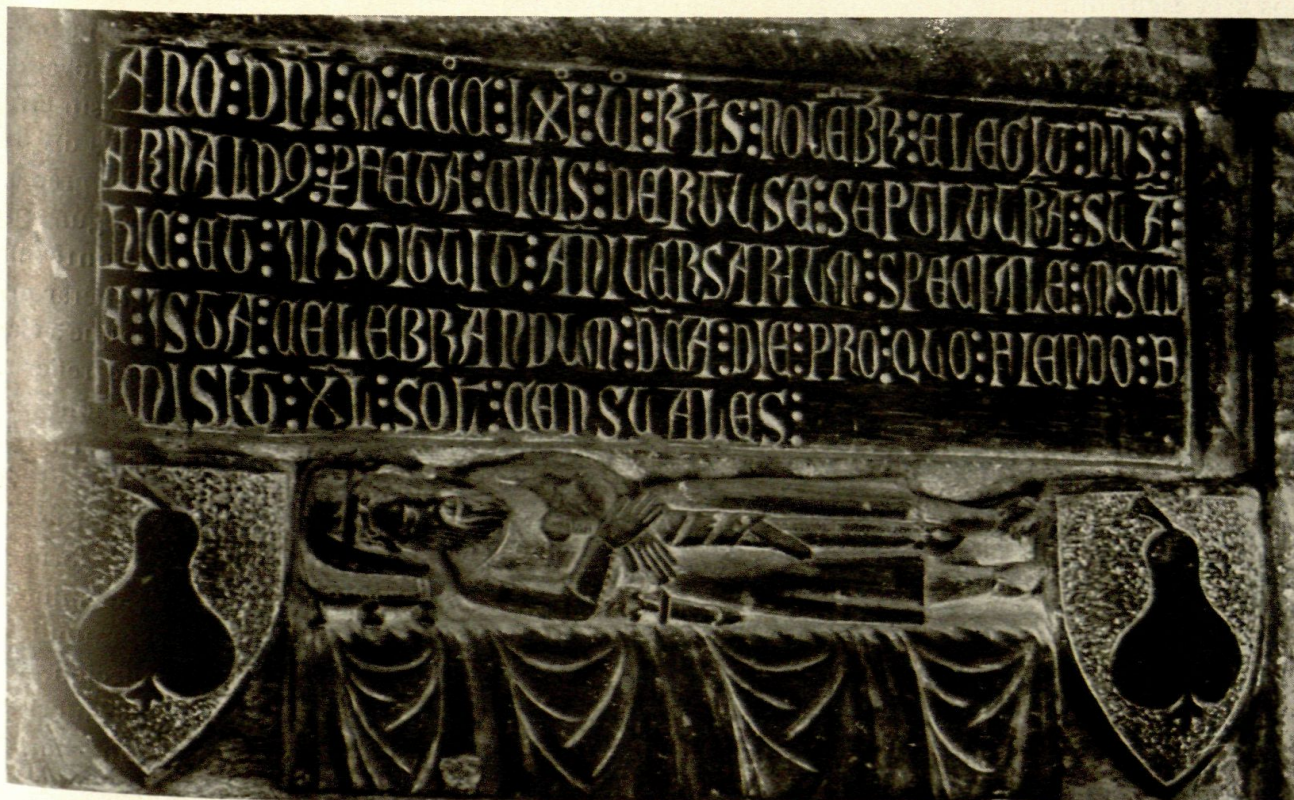 ANO : DNI : M : CCC : LXI : VI : KLS : NOVEBR : ELEGIT : DNS :
ARNALDꝰ : PFETA : CIVIS : DERTUSE : SEPULTURA : SUA :
HIC : ET : INSTITUIT : ANIVERSARIUM : SPECIALE : IN SCD
E : ISTA : CELEBRANDUM : DCA : DIE : PRO : QUO : FIENDO : D
IMISIT : XL : SOL : CENSUALES :